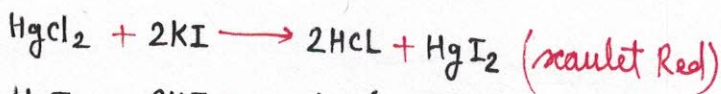 HgCl₂ + 2KI ⟶ 2HCL + HgI₂ (scaulet Red)